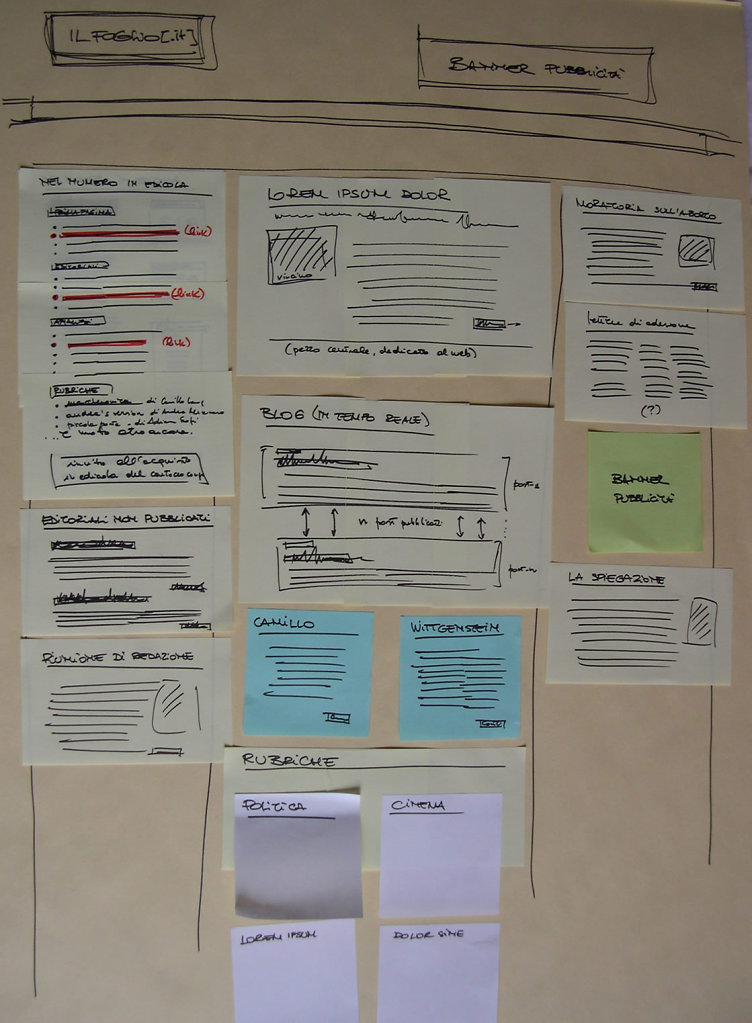 IL FOGLIO[.it]
BANNER PUBBLICITÀ
NEL NUMERO IN EDICOLA
PRIMA PAGINA
(link)
EDITORIALI
(link)
(link)
RUBRICHE
di Camillo Langone
andrea's version di Andrea Marcenaro
piccola posta di Adriano Sofri
...e molto altro ancora.
invito all'acquisto
in edicola del cartaceo
EDITORIALI NON PUBBLICATI
RIUNIONE DI REDAZIONE
LOREM IPSUM DOLOR
(pezzo centrale, dedicato al web)
BLOG (IN TEMPO REALE)
post-1
n post pubblicati
post-n
CAMILLO
WITTGENSTEIN
RUBRICHE
POLITICA
CINEMA
LOREM IPSUM
DOLOR SINE
MORATORIA SULL'ABORTO
lettere di adesione
(?)
BANNER
PUBBLICITÀ
LA SPIEGAZIONE